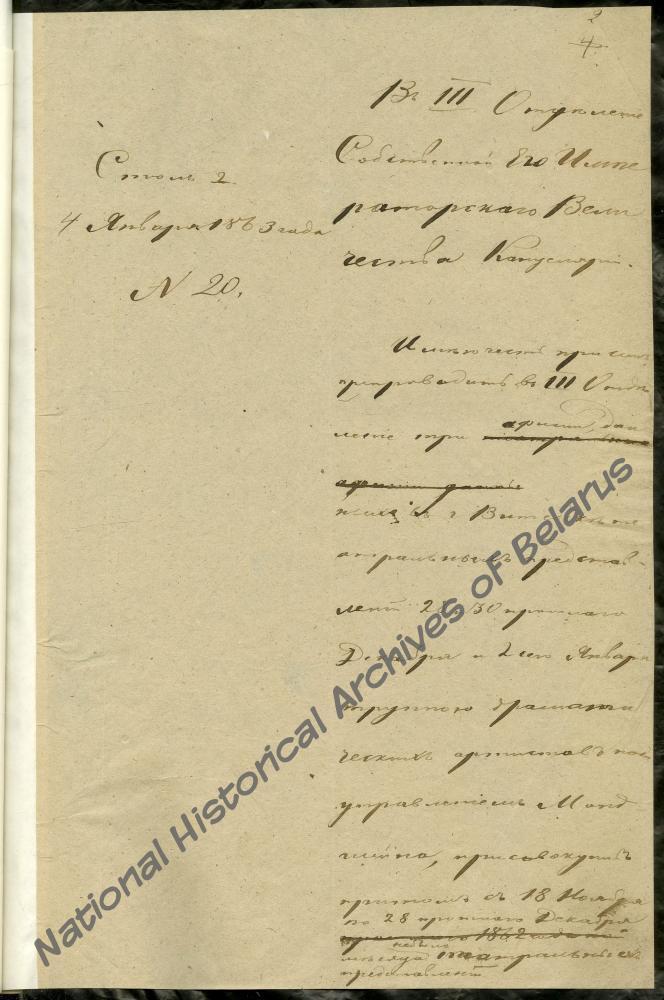 2
4
Въ III Отделеніе
Собственной Его Импе
раторскаго Вели
чества Канцеляріи.
Столъ 2.
4 Января 1863 года
N 20.
Имею честь при семъ
препроводить въ III Отде
леніе три афиши, дан
ныхъ въ г. Витебске те
атральныхъ представ-
леній 28, 30 прошлаго
Декабря и 2 сего Января
труппою драмати
ческихъ артистовъ подъ
управленіемъ
присовокупивъ
притомъ съ 18 Ноября
по 28 прошлаго Декабря
небыло
театральныхъ
представленій
National Historical Archives of Belarus